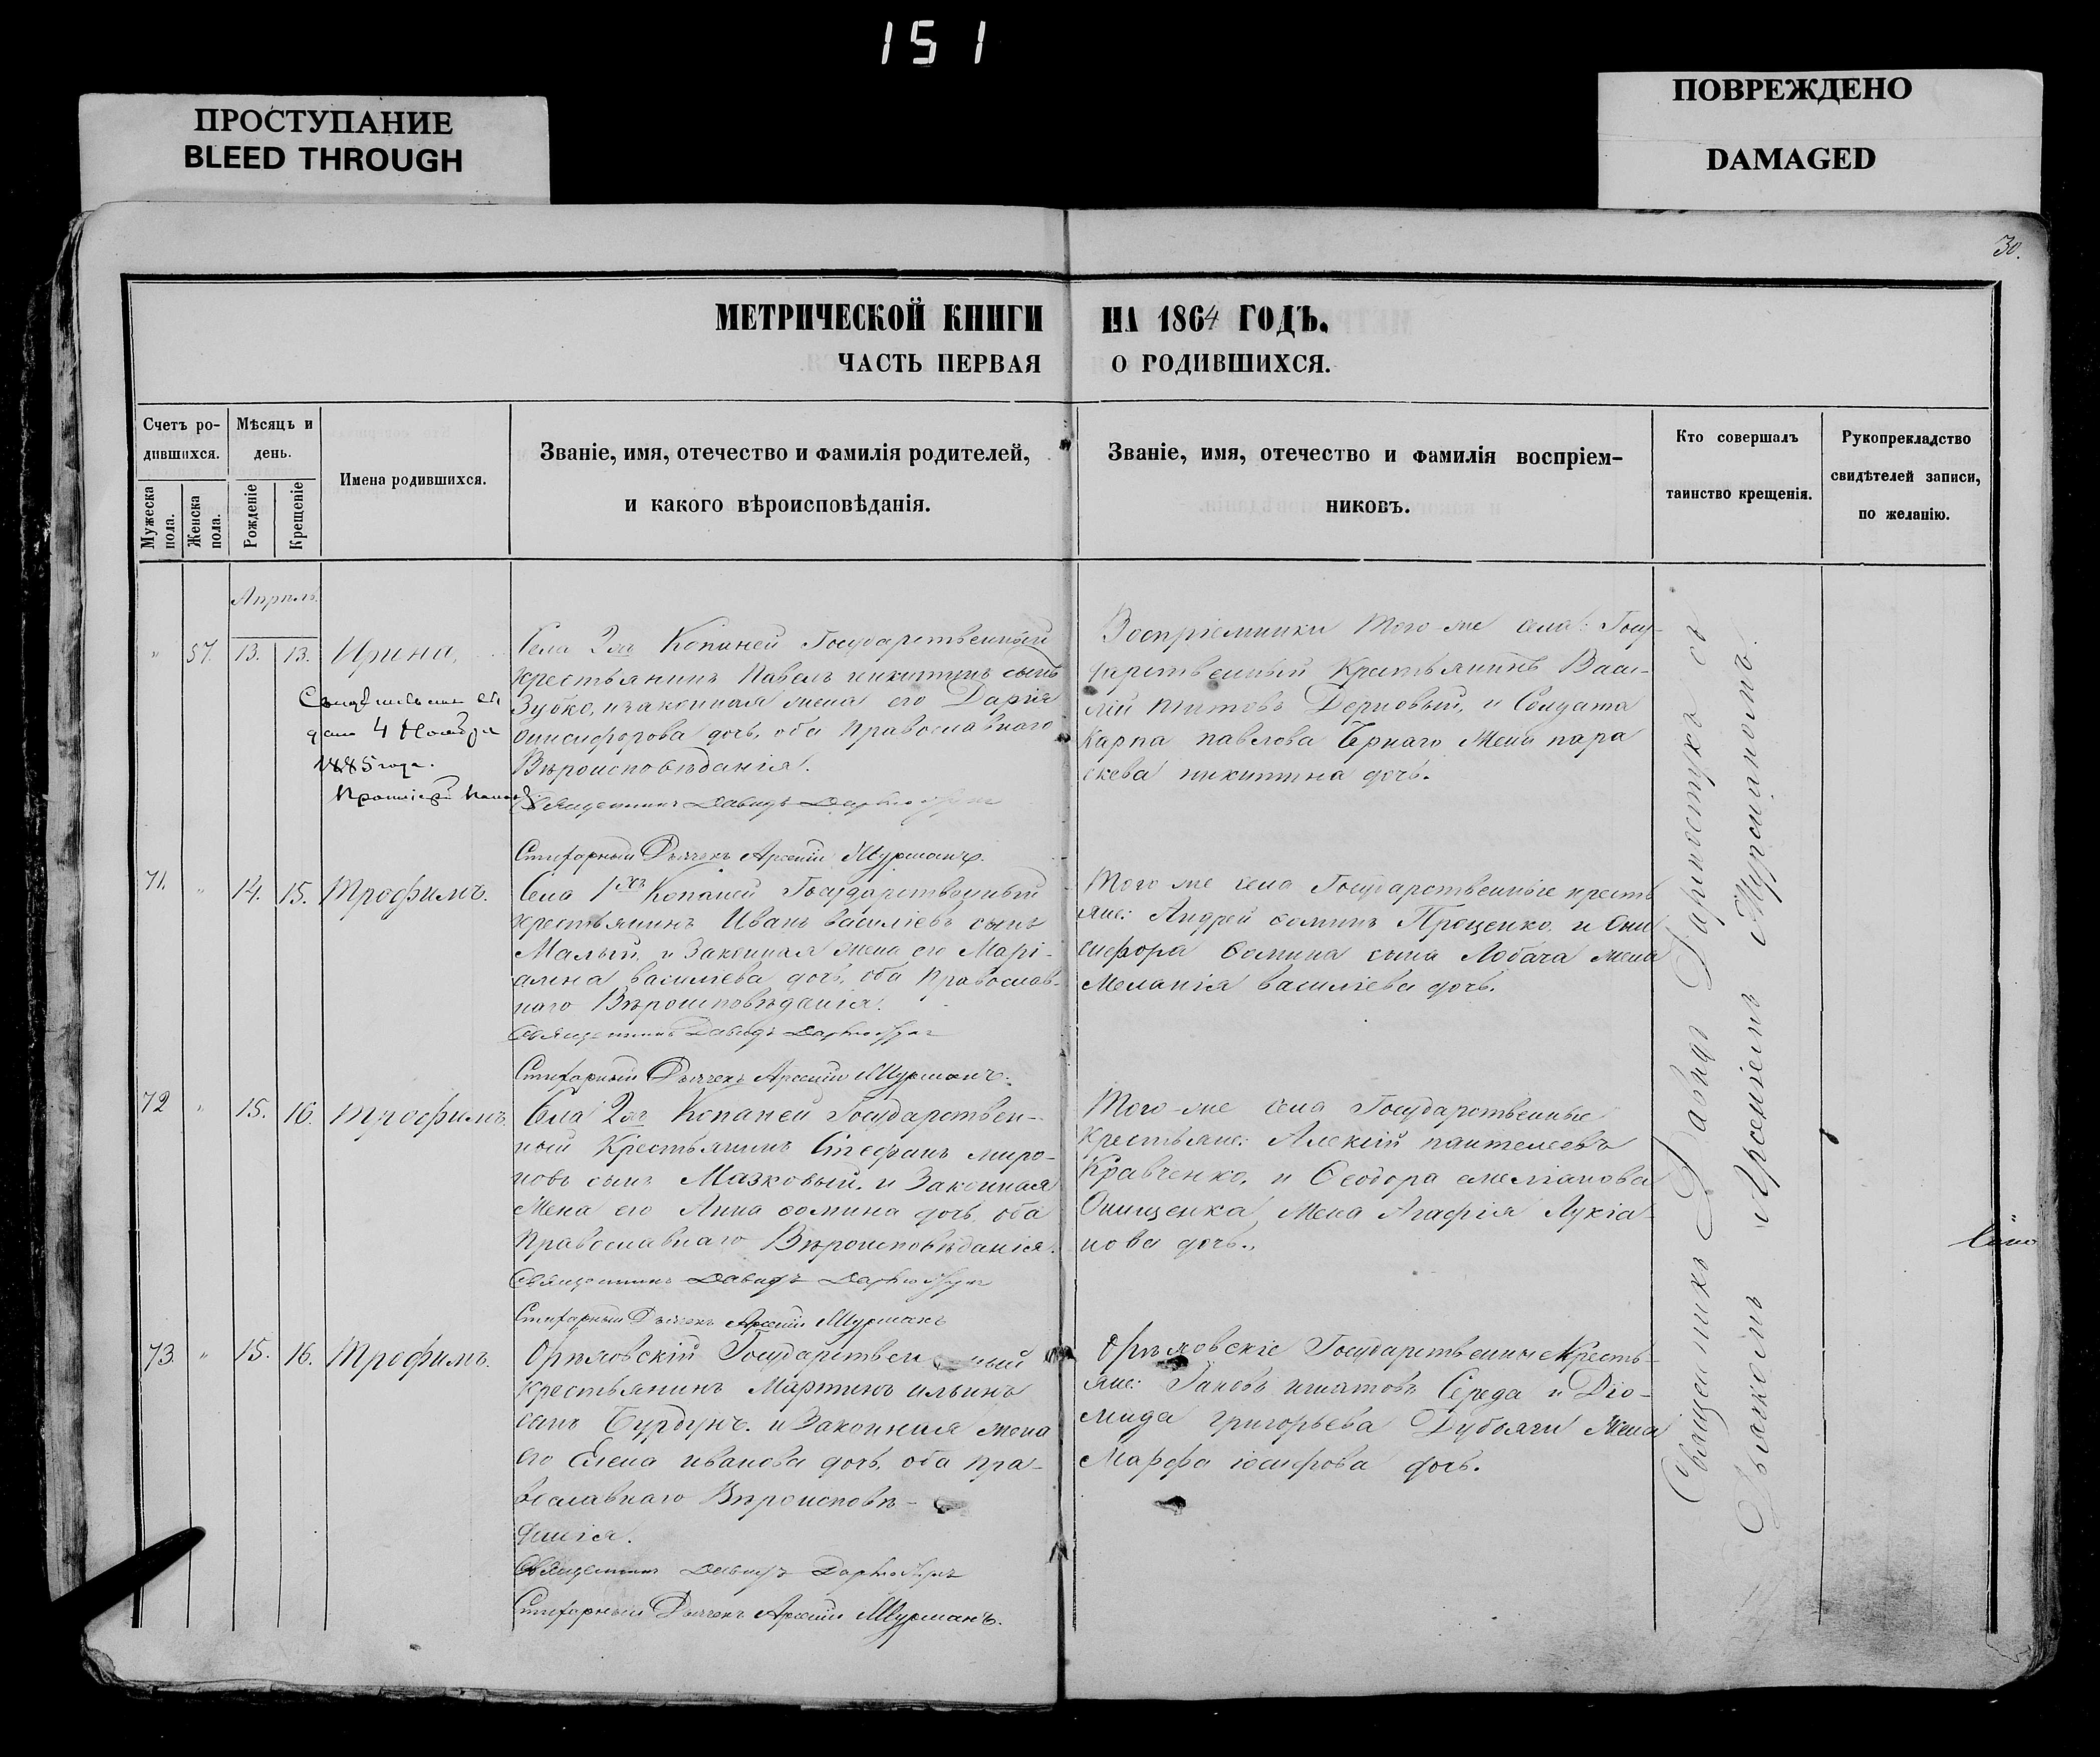 151
ПРОСТУПАНИЕ
BLEED THROUGH
ПОВРЕЖДЕНО
DAMAGED
30.
МЕТРИЧЕСКОЙ КНИГИ НА 1864 ГОДЪ.
ЧАСТЬ ПЕРВАЯ О РОДИВШИХСЯ.
Счетъ ро-
дившихся.
Мужеска пола.
Женска пола.
Мѣсяцъ и
день.
Рожденіе
Крещеніе
Имена родившихся.
Званіе, имя, отечество и фамилія родителей,
и какого вѣроисповѣданія.
Званіе, имя, отечество и фамилія воспріем-
никовъ.
Кто совершалъ
таинство крещенія.
Рукоприкладство
свидѣтелей записи,
по желанію.
Апрѣль
" 57. 13. 13. Ирина,
4 Ноября
1885 года.
Села 2хъ Копаней Государственный
крестьянинъ Павелъ никитинъ сынъ
Зубко, и законная жена его Дарія
онисифорова дочь, оба православнаго
Вѣроисповѣданія.
Священникъ Давидъ
Стихарный Дьячекъ Арсеній Мурманъ.
Воспріемники Того-же села: Госу-
дарственный Крестьянинъ Васи-
лій титовъ Дерновый, и Солдата
Карпа павлова Чернаго Жена пара
скева никитина дочь.
71. " 14. 15. Трофимъ.
Села 1хъ Копаней Государственный
крестьянинъ Иванъ васильевъ сынъ
Малый, и Законная жена его Марі-
анна васильева дочь, оба Православ-
наго Вѣроисповѣданія.
Священникъ Давидъ
Стихарный Дьячекъ Арсеній Мурманъ.
Того же села Государственные кресть
яне: Андрей ѳоминъ Проценко, и Они
сифора Ѳомина сына Лобача жена
Меланія васильева дочь.
72 " 15. 16. Трофимъ.
Села 2хъ Копаней Государствен-
ный Крестьянинъ Стефанъ миро-
новъ сынъ Мазковый, и Законная
Жена его Анна ѳомина дочь, оба
Православнаго Вѣроисповѣданія.
Священникъ Давидъ
Стихарный Дьячекъ Арсеній Мурманъ
Того-же села Государственные
Крестьяне: Алексій пантелеевъ
Кравченко, и Ѳеодора емеліанова
Онищенка, Жена Агафія Лукіа-
нова дочь.
73. " 15. 16. Трофимъ.
Орѣховскій Государственный
крестьянинъ Мартинъ ильинъ
сынъ Бурдунъ, и Законная жена
его Елена иванова дочь, оба пра-
вославнаго Вѣроисповѣ-
данія.
Священникъ Давидъ
Стихарный Дьячекъ Арсеній Мурманъ.
Орѣховскіе Государственные Кресть-
яне: Іаковъ игнатовъ Середа и Діо-
мида григорьева Дубяги Жена
Марфа іосифова дочь.
Священникъ Давидъ
Дьячкомъ Арсеніемъ Мурманомъ.